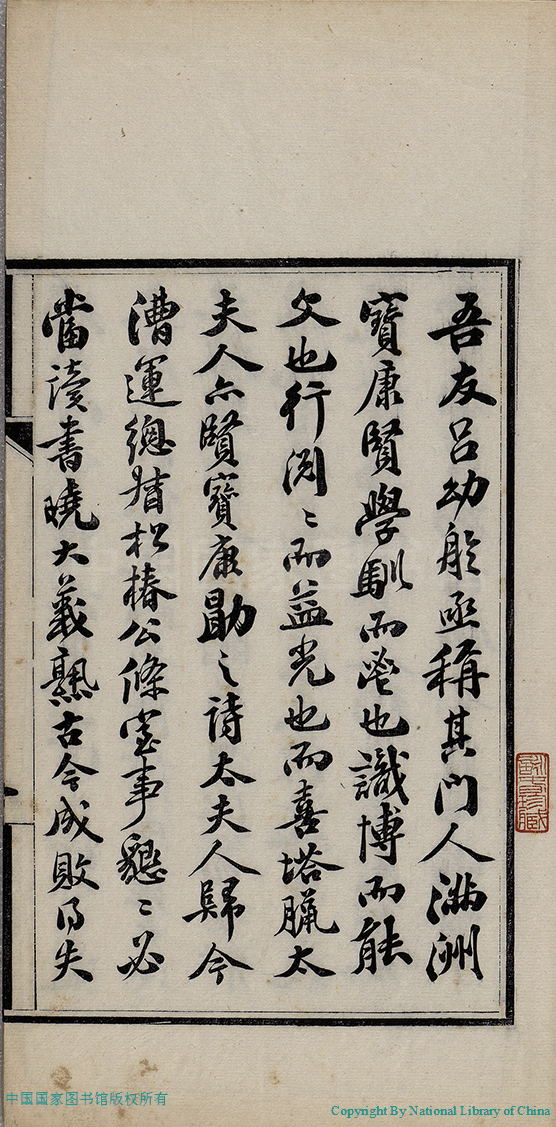 吾友呂幼舲亟稱其門人滿洲
寶康賢學馴而鬯也識博而能
文也行淵〻而益光也而喜塔臘太
夫人亦賢寶康勖之詩太夫人歸今
漕運總督松椿公條室事懇〻必
當讀書曉大義熟古今成敗得失
中国国家图书馆版权所有
Copyright By National Library of China